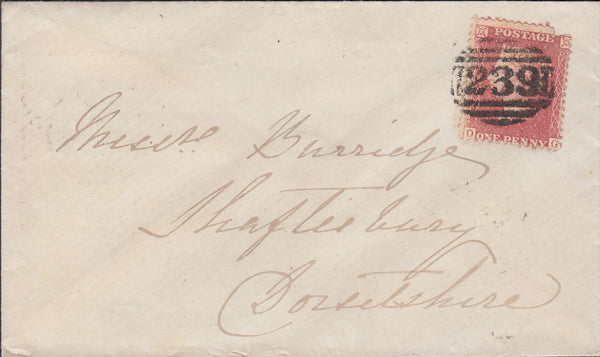 POSTAGE
239
O ONE PENNY G
Messrs Burridge
Shaftesbury
Dorsetshire